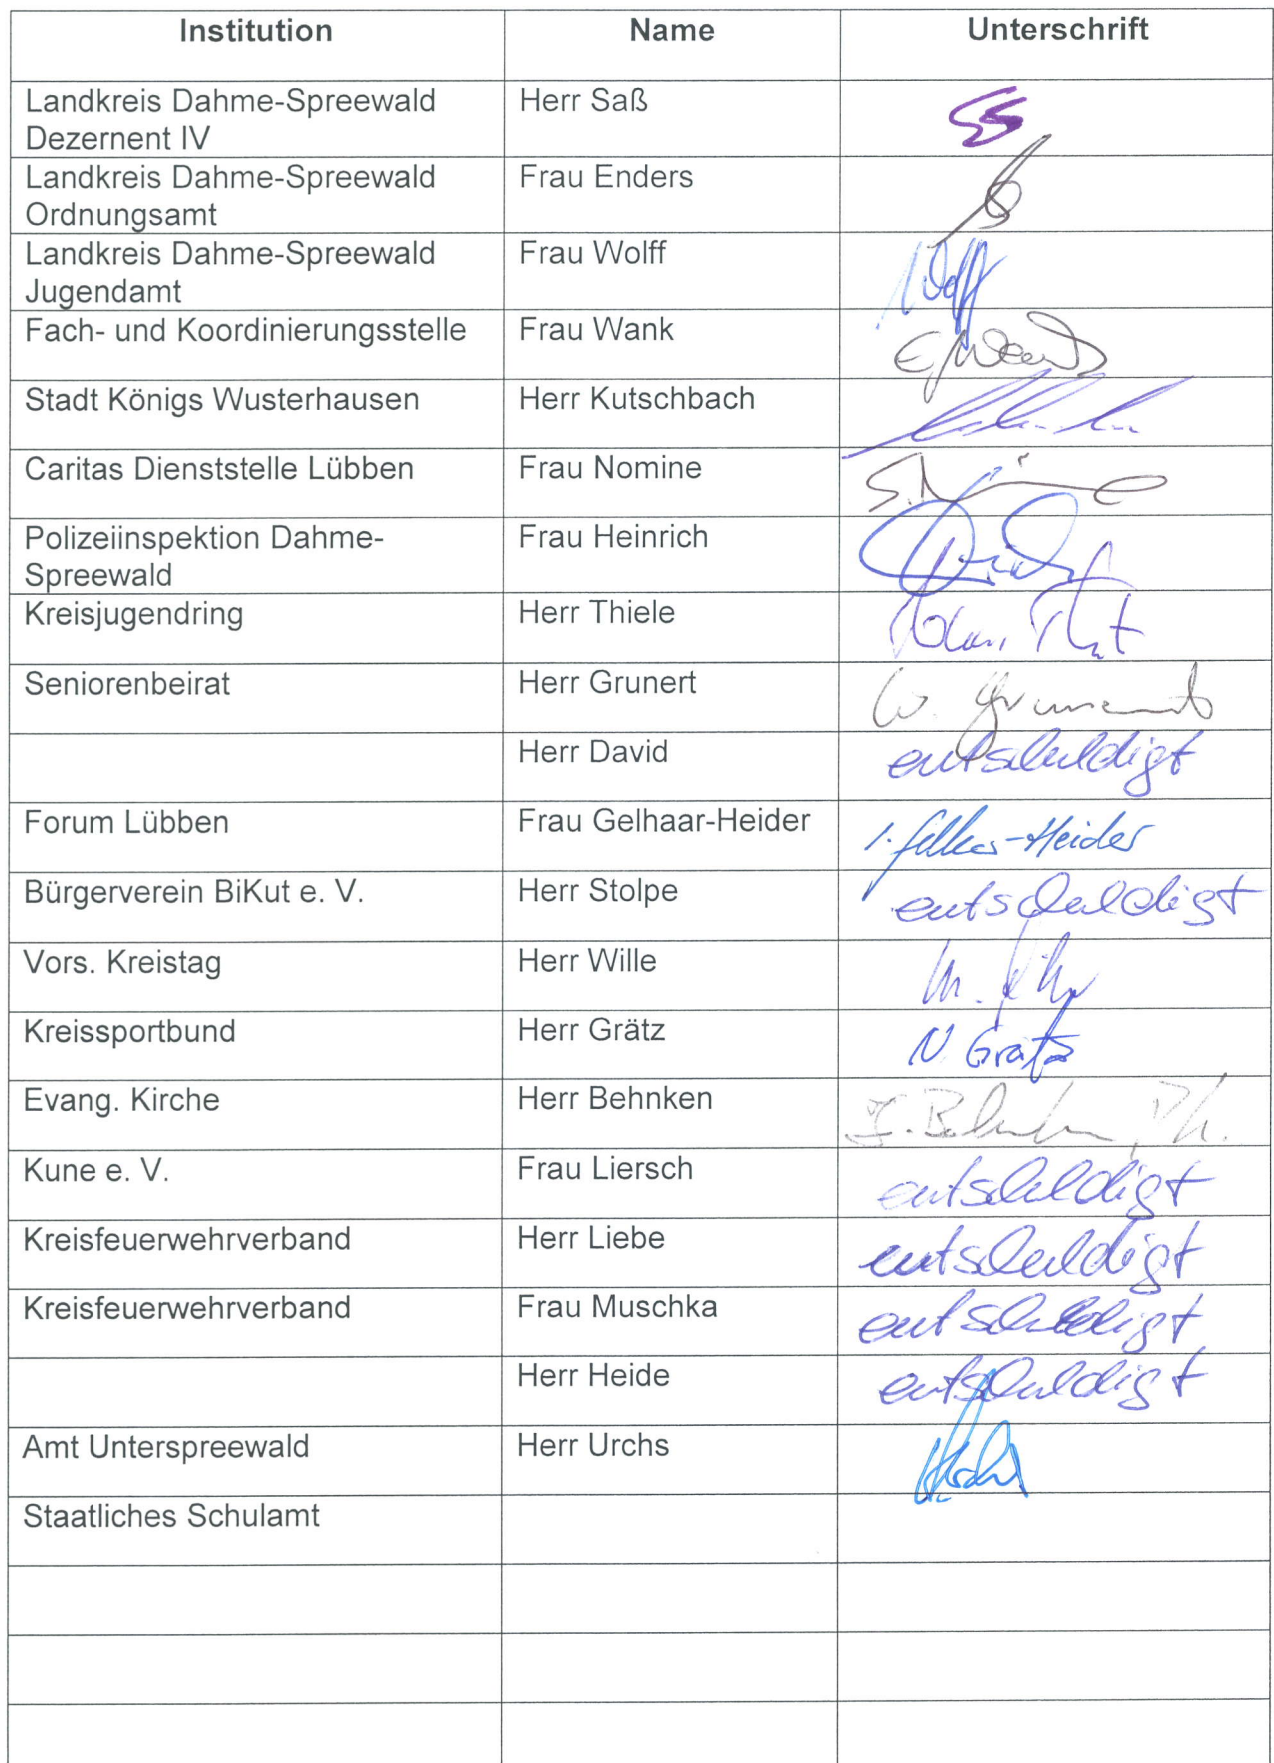 Institution Name Unterschrift
Landkreis Dahme-Spreewald Herr Saß
Dezernent IV
Landkreis Dahme-Spreewald Frau Enders
Ordnungsamt
Landkreis Dahme-Spreewald Frau Wolff Wolff
Jugendamt
Fach- und Koordinierungsstelle Frau Wank
Stadt Königs Wusterhausen Herr Kutschbach
Caritas Dienststelle Lübben Frau Nomine
Polizeiinspektion Dahme- Frau Heinrich
Spreewald
Kreisjugendring Herr Thiele
Seniorenbeirat Herr Grunert W.
Herr David entschuldigt
Forum Lübben Frau Gelhaar-Heider -Heider
Bürgerverein BiKut e. V. Herr Stolpe entschuldigt
Vors. Kreistag Herr Wille
Kreissportbund Herr Grätz N. Grätz
Evang. Kirche Herr Behnken
Kune e. V. Frau Liersch entschuldigt
Kreisfeuerwehrverband Herr Liebe entschuldigt
Kreisfeuerwehrverband Frau Muschka entschuldigt
Herr Heide entschuldigt
Amt Unterspreewald Herr Urchs
Staatliches Schulamt